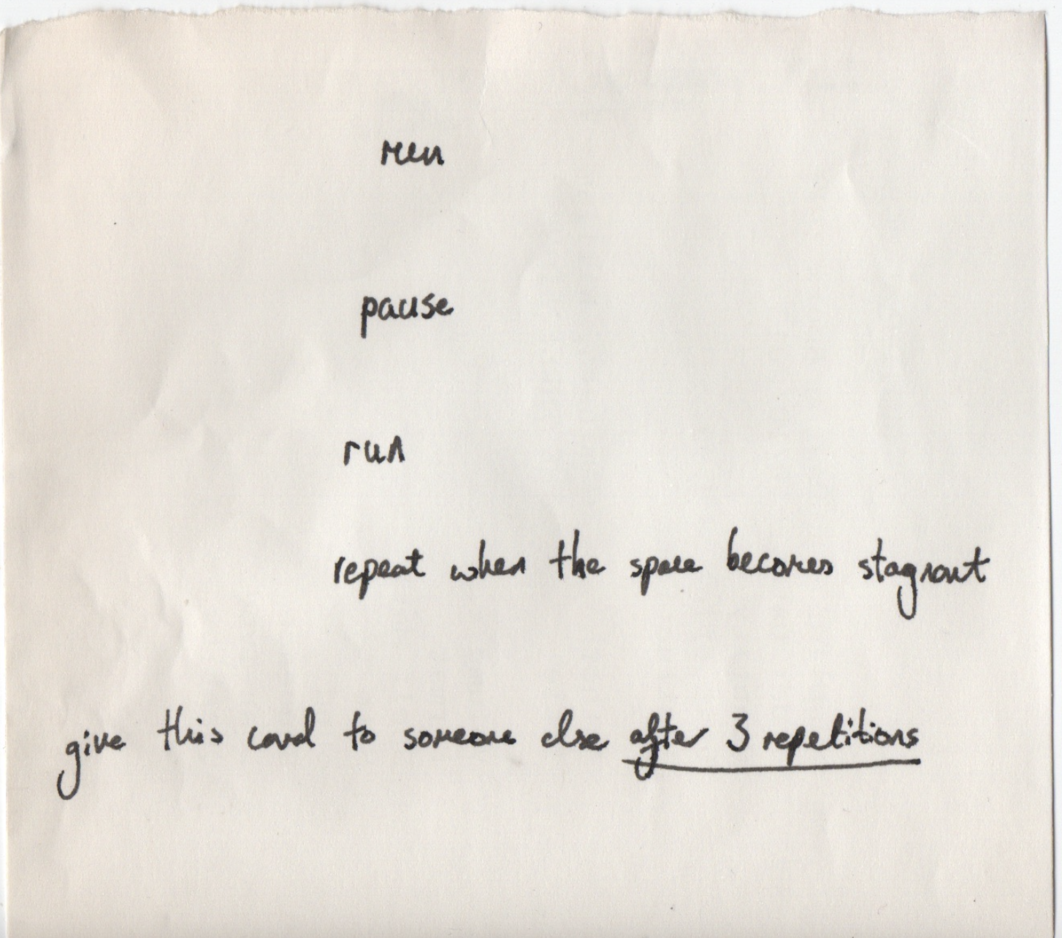 run
pause
run
repeat when the space becomes stagnant
give this card to someone else after 3 repetitions